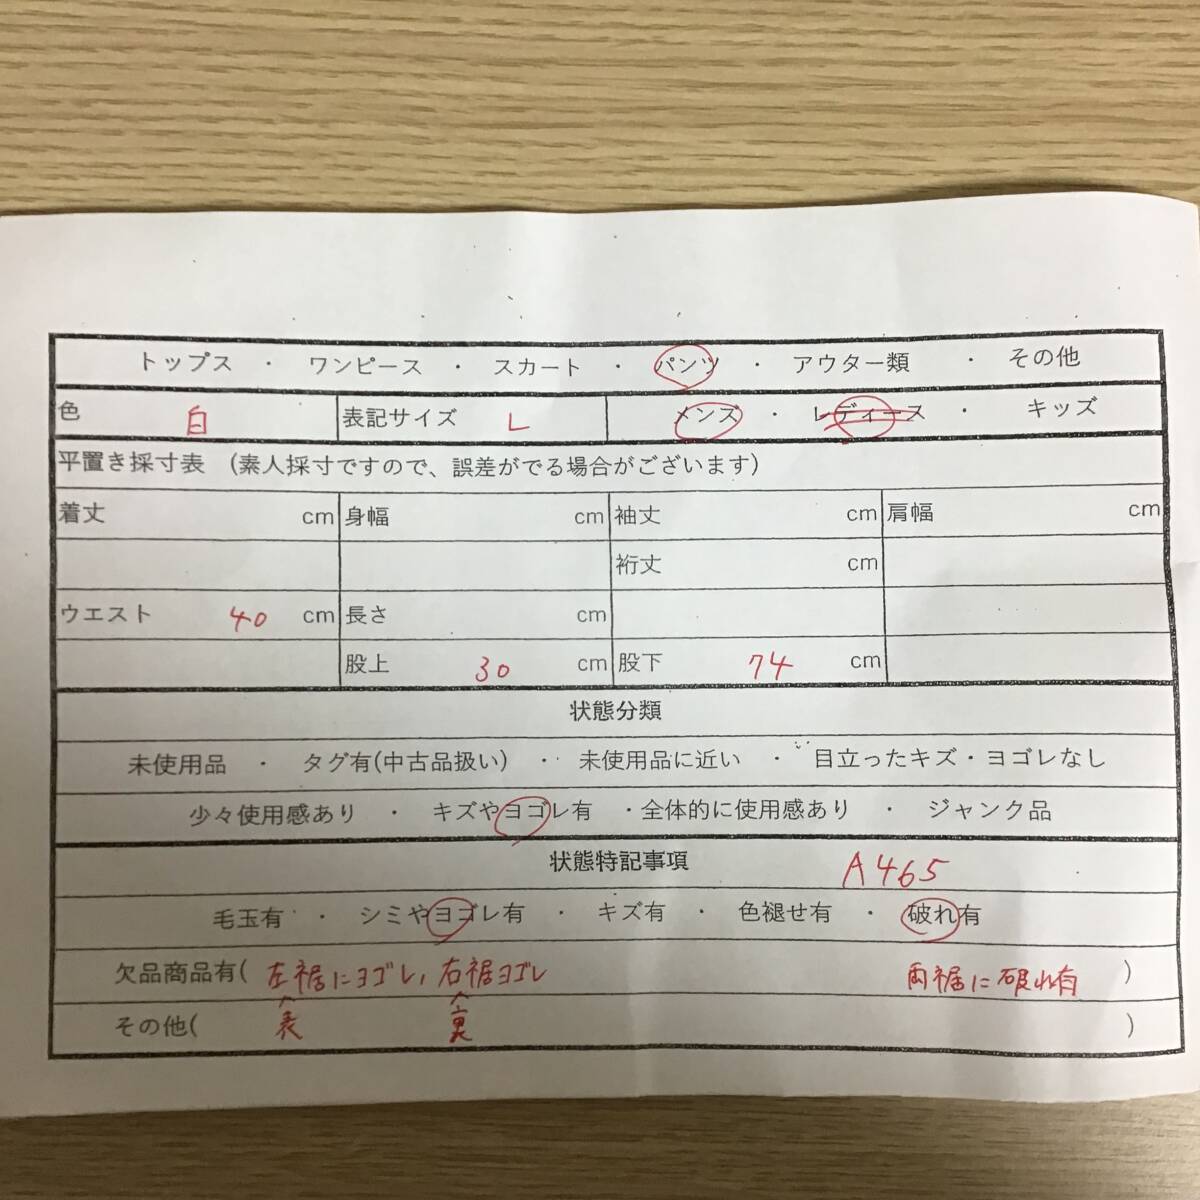 トップス ・ ワンピース ・ スカート ・ パンツ ・ アウター類 ・ その他
色 白 表記サイズ L メンズ ・ レディース ・ キッズ
平置き採寸表 (素人採寸ですので、誤差がでる場合がございます)
着丈 cm 身幅 cm 袖丈 cm 肩幅 cm
裄丈 cm
ウエスト 40 cm 長さ cm
股上 30 cm 股下 74 cm
状態分類
未使用品 ・ タグ有(中古品扱い) ・ 未使用品に近い ・ 目立ったキズ・ヨゴレなし
少々使用感あり ・ キズやヨゴレ有 ・全体的に使用感あり ・ ジャンク品
状態特記事項 A465
毛玉有 ・ シミやヨゴレ有 ・ キズ有 ・ 色褪せ有 ・ 破れ有
欠品商品有( 左裾にヨゴレ, 右裾ヨゴレ 両裾に破れ有 )
その他( 表 裏 )